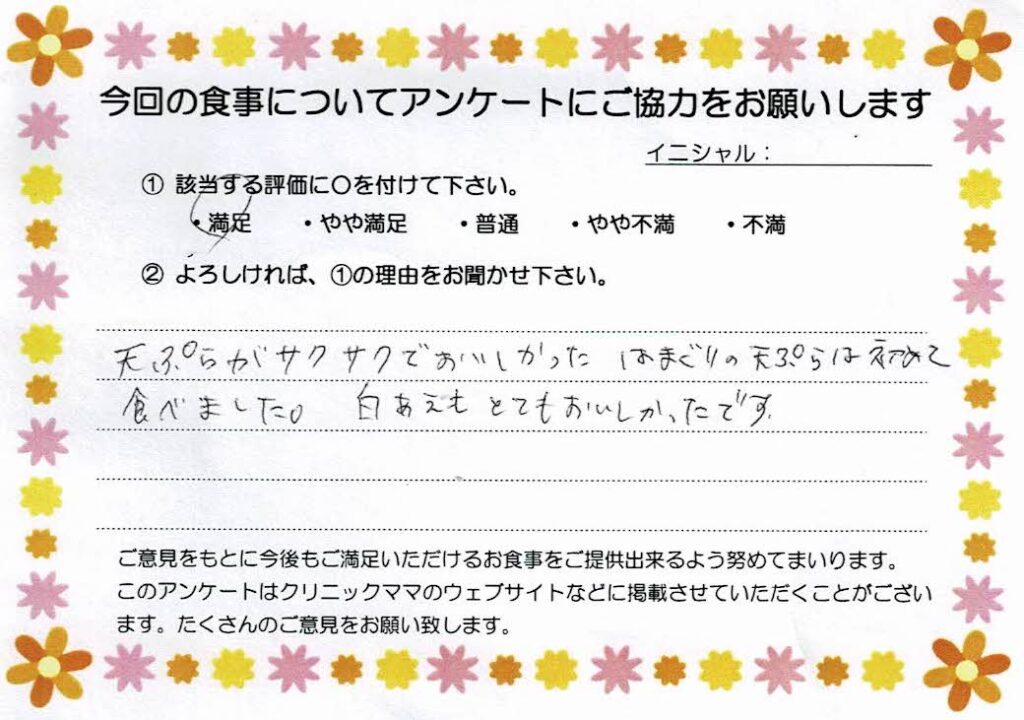 今回の食事についてアンケートにご協力をお願いします
イニシャル：
① 該当する評価に〇を付けて下さい。
・満足 ・やや満足 ・普通 ・やや不満 ・不満
② よろしければ、①の理由をお聞かせ下さい。
天ぷらがサクサクでおいしかった はまぐりの天ぷらは初めて
食べました。 白あえもとてもおいしかったです
ご意見をもとに今後もご満足いただけるお食事をご提供出来るよう努めてまいります。
このアンケートはクリニックママのウェブサイトなどに掲載させていただくことがござい
ます。たくさんのご意見をお願い致します。